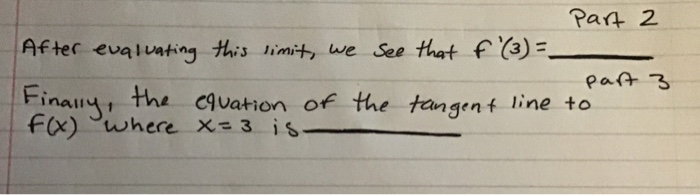 Part 2
After evaluating this limit, we see that f'(3)=
part 3
Finally, the equation of the tangent line to
f(x) where x=3 is